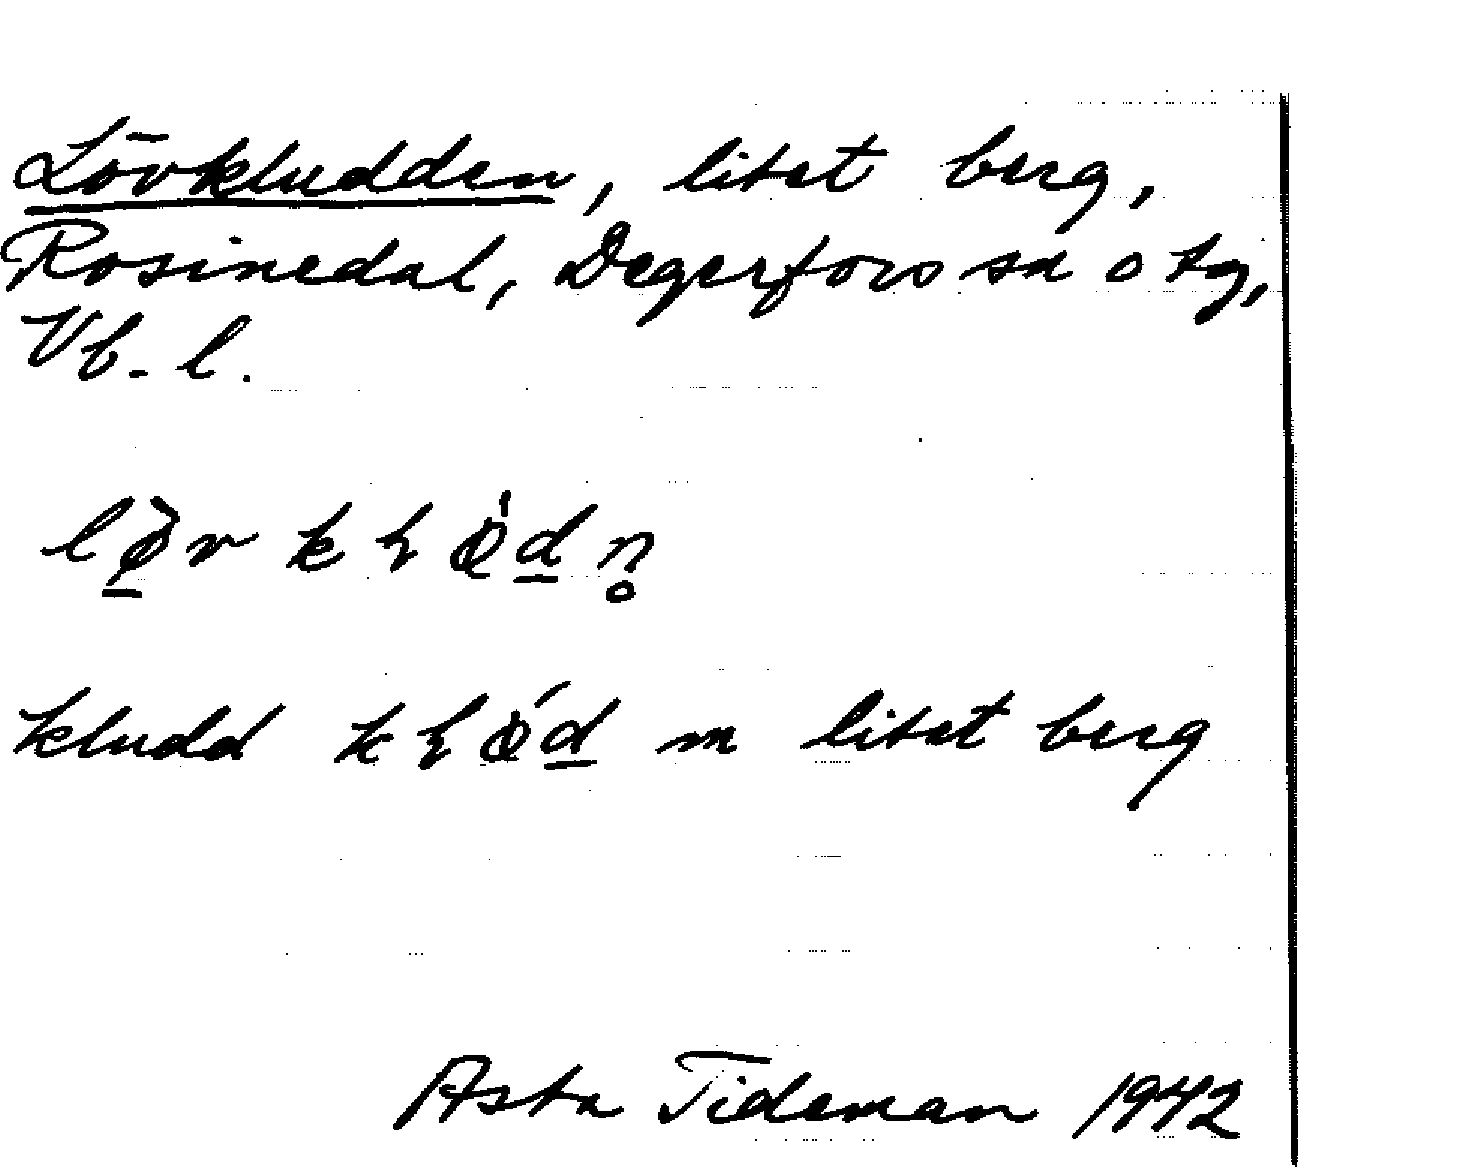 Lövkludden, litet berg,
Rosinedal, Degerfors sn o tg,
Vb. l.
kludd m litet berg
Asta Tideman 1942